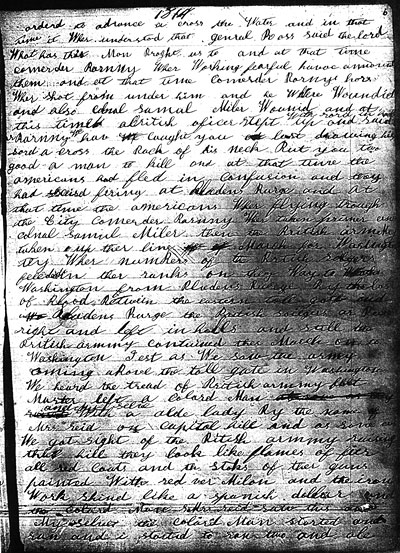 1814
6
orderd to advance a cross the Water and in that
time it Wher understood that genrel Ross said the lord
What has this Man Broght us to and at that time
comerder Barnny Wher Working fearful havoc amoung
them and at that time comerder Barnys hors
Wher shot from under him and he Where Woundid
and also Conal Samul Miler Wound and at
this time a British oficer Stept up and said
Barnny We hav caught you at last drawing his
sord a cross the Back of his neck But you too
good a man to kill and at that time the
americans had fled in confusion and they
had seisid firing at Bladens Burg and At
that time the americans Wher flying through
the City comerder Barnny Wher taken prisner and
Colnal Samul Miler then the British armmy
taken up ther line of March for Washing
ton ther Wher numbers of the British Solgers
in ther ranks on they Way to
Washington from Bladens Burge By the loss
of Blood Betwin the eastern tole gate and
Bladens Burge the British soldiers
right and left in heeps and still the
British armmy contunued ther March on to
Washington Jest as We saw the army
coming above the toll gate in Washington
We heard the tread of British armmy feet
Master left a colard Man
and My selve With a olde lady By the name
Mrs reid on Capitol hill and as sone as
We got sight of the Britesh armmy raising
that hill they look like flames of fier
all red Coats and the stoks of ther guns
painted With red ver Milon and the iron
Work shined like a spanish dollar
the colard Man
My selve the colard Man started and
run and i started to run two and